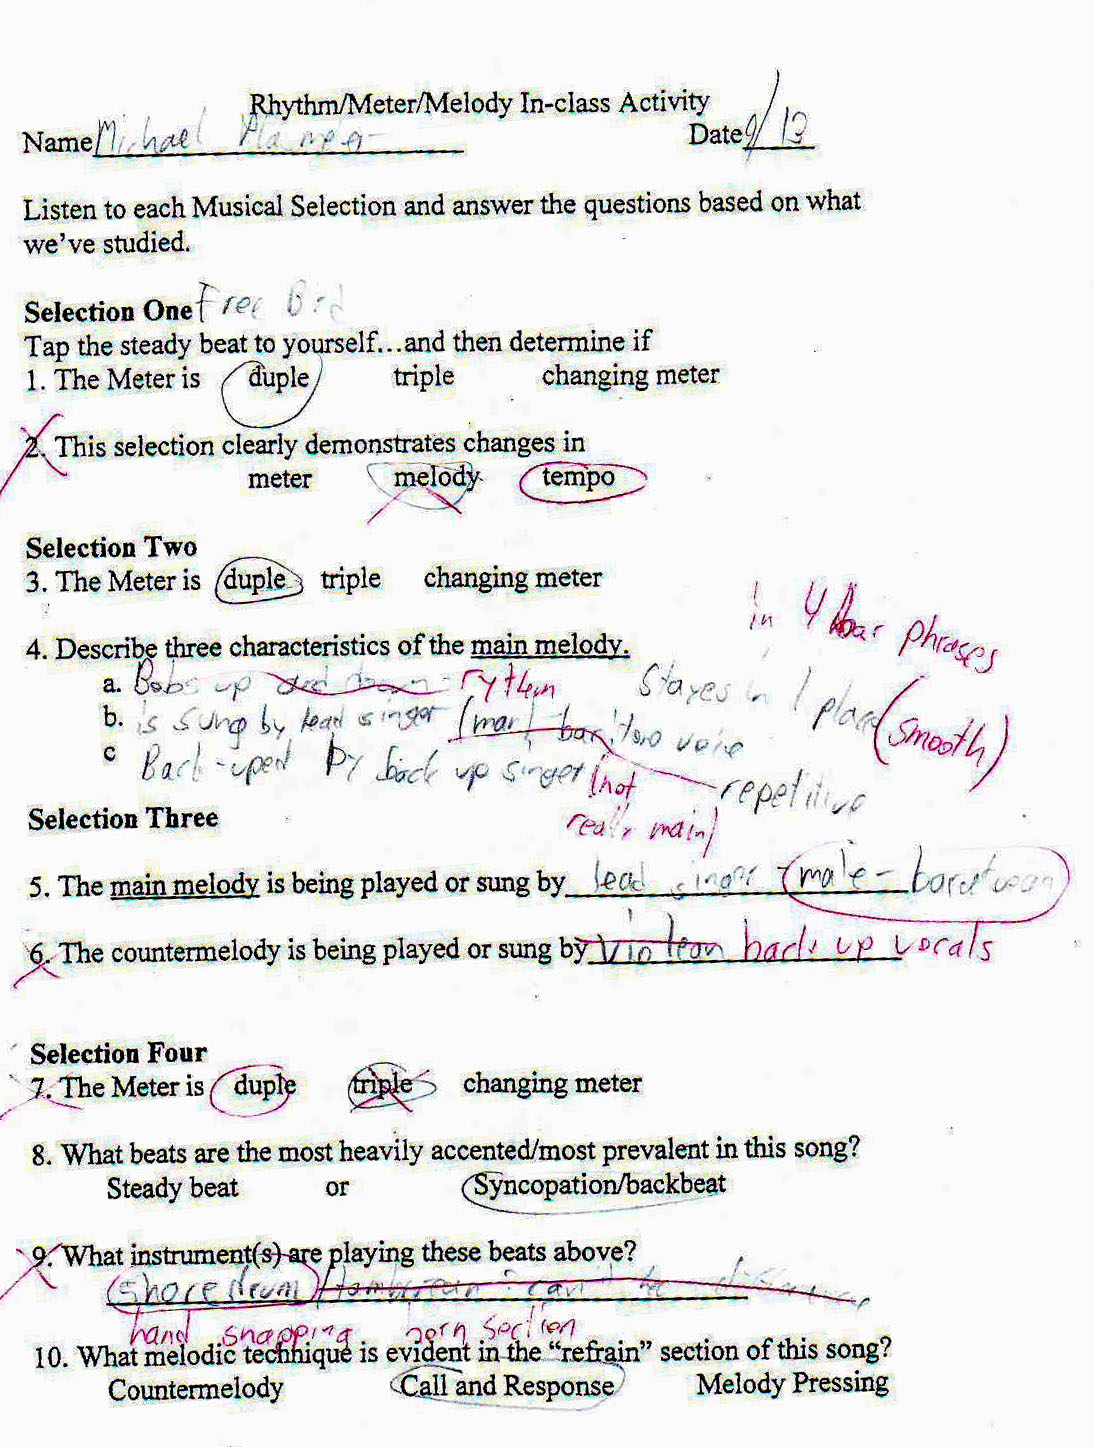 Rhythm/Meter/Melody In-class Activity
Name Michael Date 9/13
Listen to each Musical Selection and answer the questions based on what
we've studied.
Selection One Free Bird
Tap the steady beat to yourself...and then determine if
1. The Meter is duple triple changing meter
2. This selection clearly demonstrates changes in
meter melody tempo
Selection Two
3. The Meter is duple triple changing meter
in 4 bar phrases
4. Describe three characteristics of the main melody.
a. Bobs up and down - rythm Stayes in 1 place (smooth)
b. is sung by lead singer (mark bari'tono voice
c Back-uped by back up singer (not repetitive
really main)
Selection Three
5. The main melody is being played or sung by lead singer - (male -
6. The countermelody is being played or sung by back up vocals
Selection Four
7. The Meter is duple triple changing meter
8. What beats are the most heavily accented/most prevalent in this song?
Steady beat or Syncopation/backbeat
9. What instrument(s) are playing these beats above?
(Snare drum)
hand snapping horn section
10. What melodic technique is evident in the "refrain" section of this song?
Countermelody Call and Response Melody Pressing